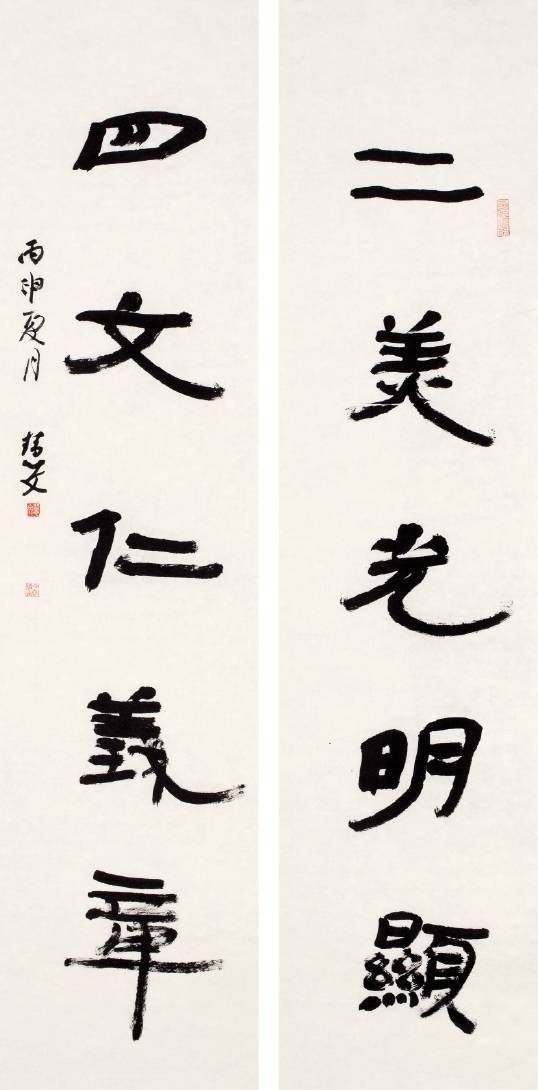 二美光明顯
四文仁義章
丙申夏月